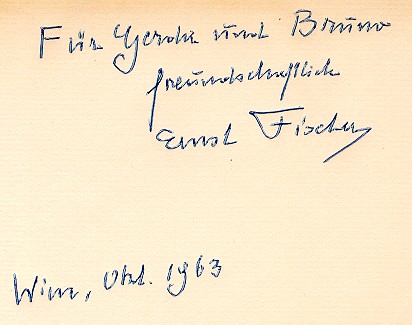 Für Gerda und Bruno
freundschaftlich
Ernst Fischer
Wien, Okt. 1963